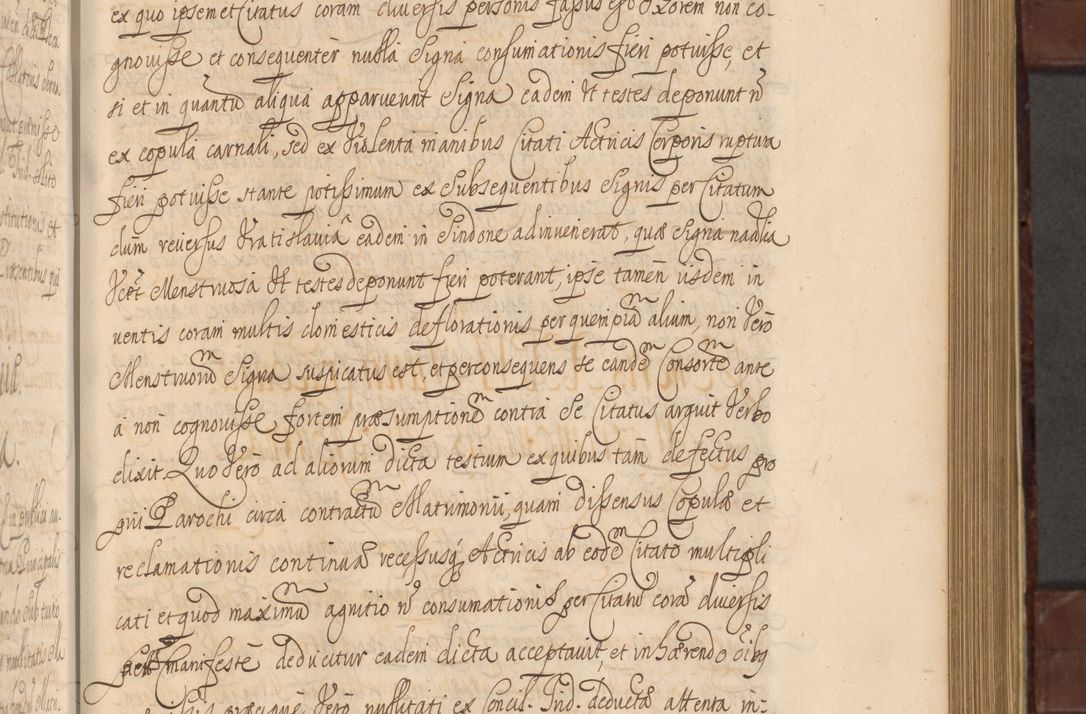 ex quo ipsemet Citatus coram diversis personis fassus est Uxorem non co-
gnovisse et consequenter nulla signa consumationis fieri potuisse, et
si et in quantu aliqua apparuerunt signa eadem Ut testes deponunt n
ex copula carnali, sed ex Violenta manibus Citati Actricis Corporis ruptura
fieri potuisse stante potissimum ex subsequentibus signis per Citatum
dum reversus Vratislavia eadem in sindone adinvenerat, quæ signa
Menstruosa Ut testes deponunt fieri poterant, ipse tamen iisdem in
ventis coram multis domesticis deflorationis per quempia alium, non Vero
Menstruoru signa suspicatus est, et perconsequens se eande Consorte ante
a non cognovisse fortem præsumptione contra se Citatus arguit Verbo
dixit. Quo Vero ad aliorum dicta testium ex quibus tam defectus pro
prii Parochi circa contractu Matrimonii, quam dissensus Copulæ et
reclamationis continuæ recessusq Actricis ab eode Citato multipli
cati et quod maximu agnitio n consumationis per Citatu cora diversis
manifeste deducitur eadem dicta acceptavit, et in hærendo oibq
præcipue Vero nullitati ex Concil. Trid. deducta attenta in-